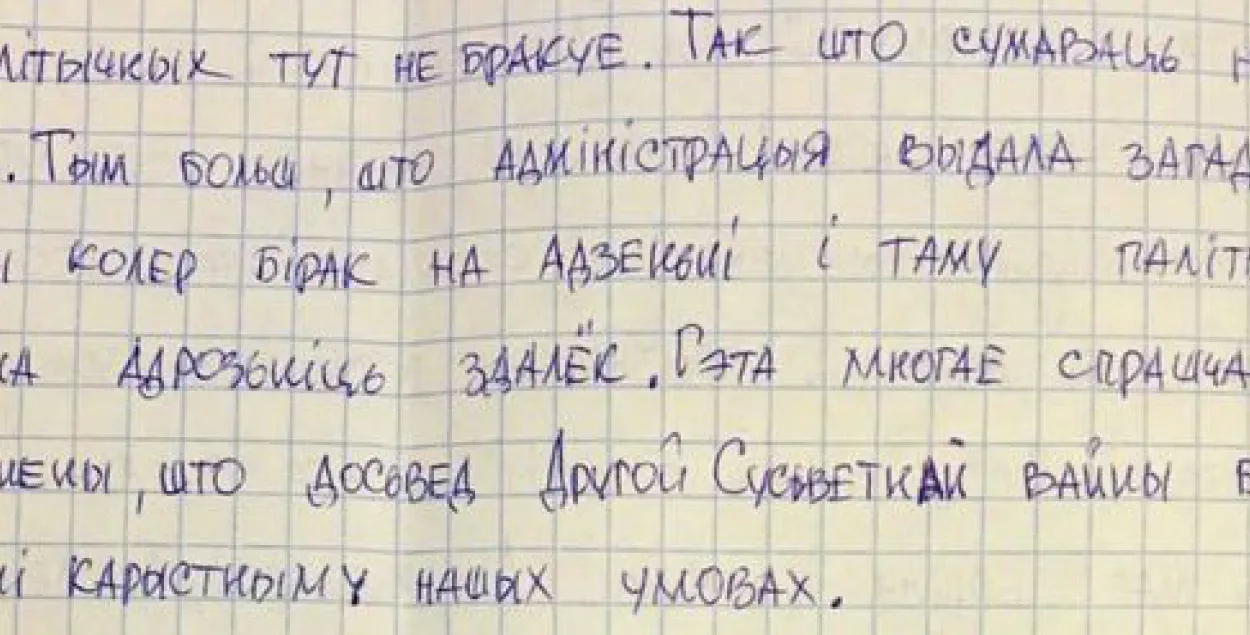 літычных тут не бракуе. Так што сумаваць н
. Тым больш, што адміністрацыя выдала загад
ы колер бірак на адзеньні і таму паліт
ка адрозьніць здалёк. Гэта многае спрашча
мены, што досьвед Другой Сусьветнай вайны в
ні карыстным у нашых умовах.